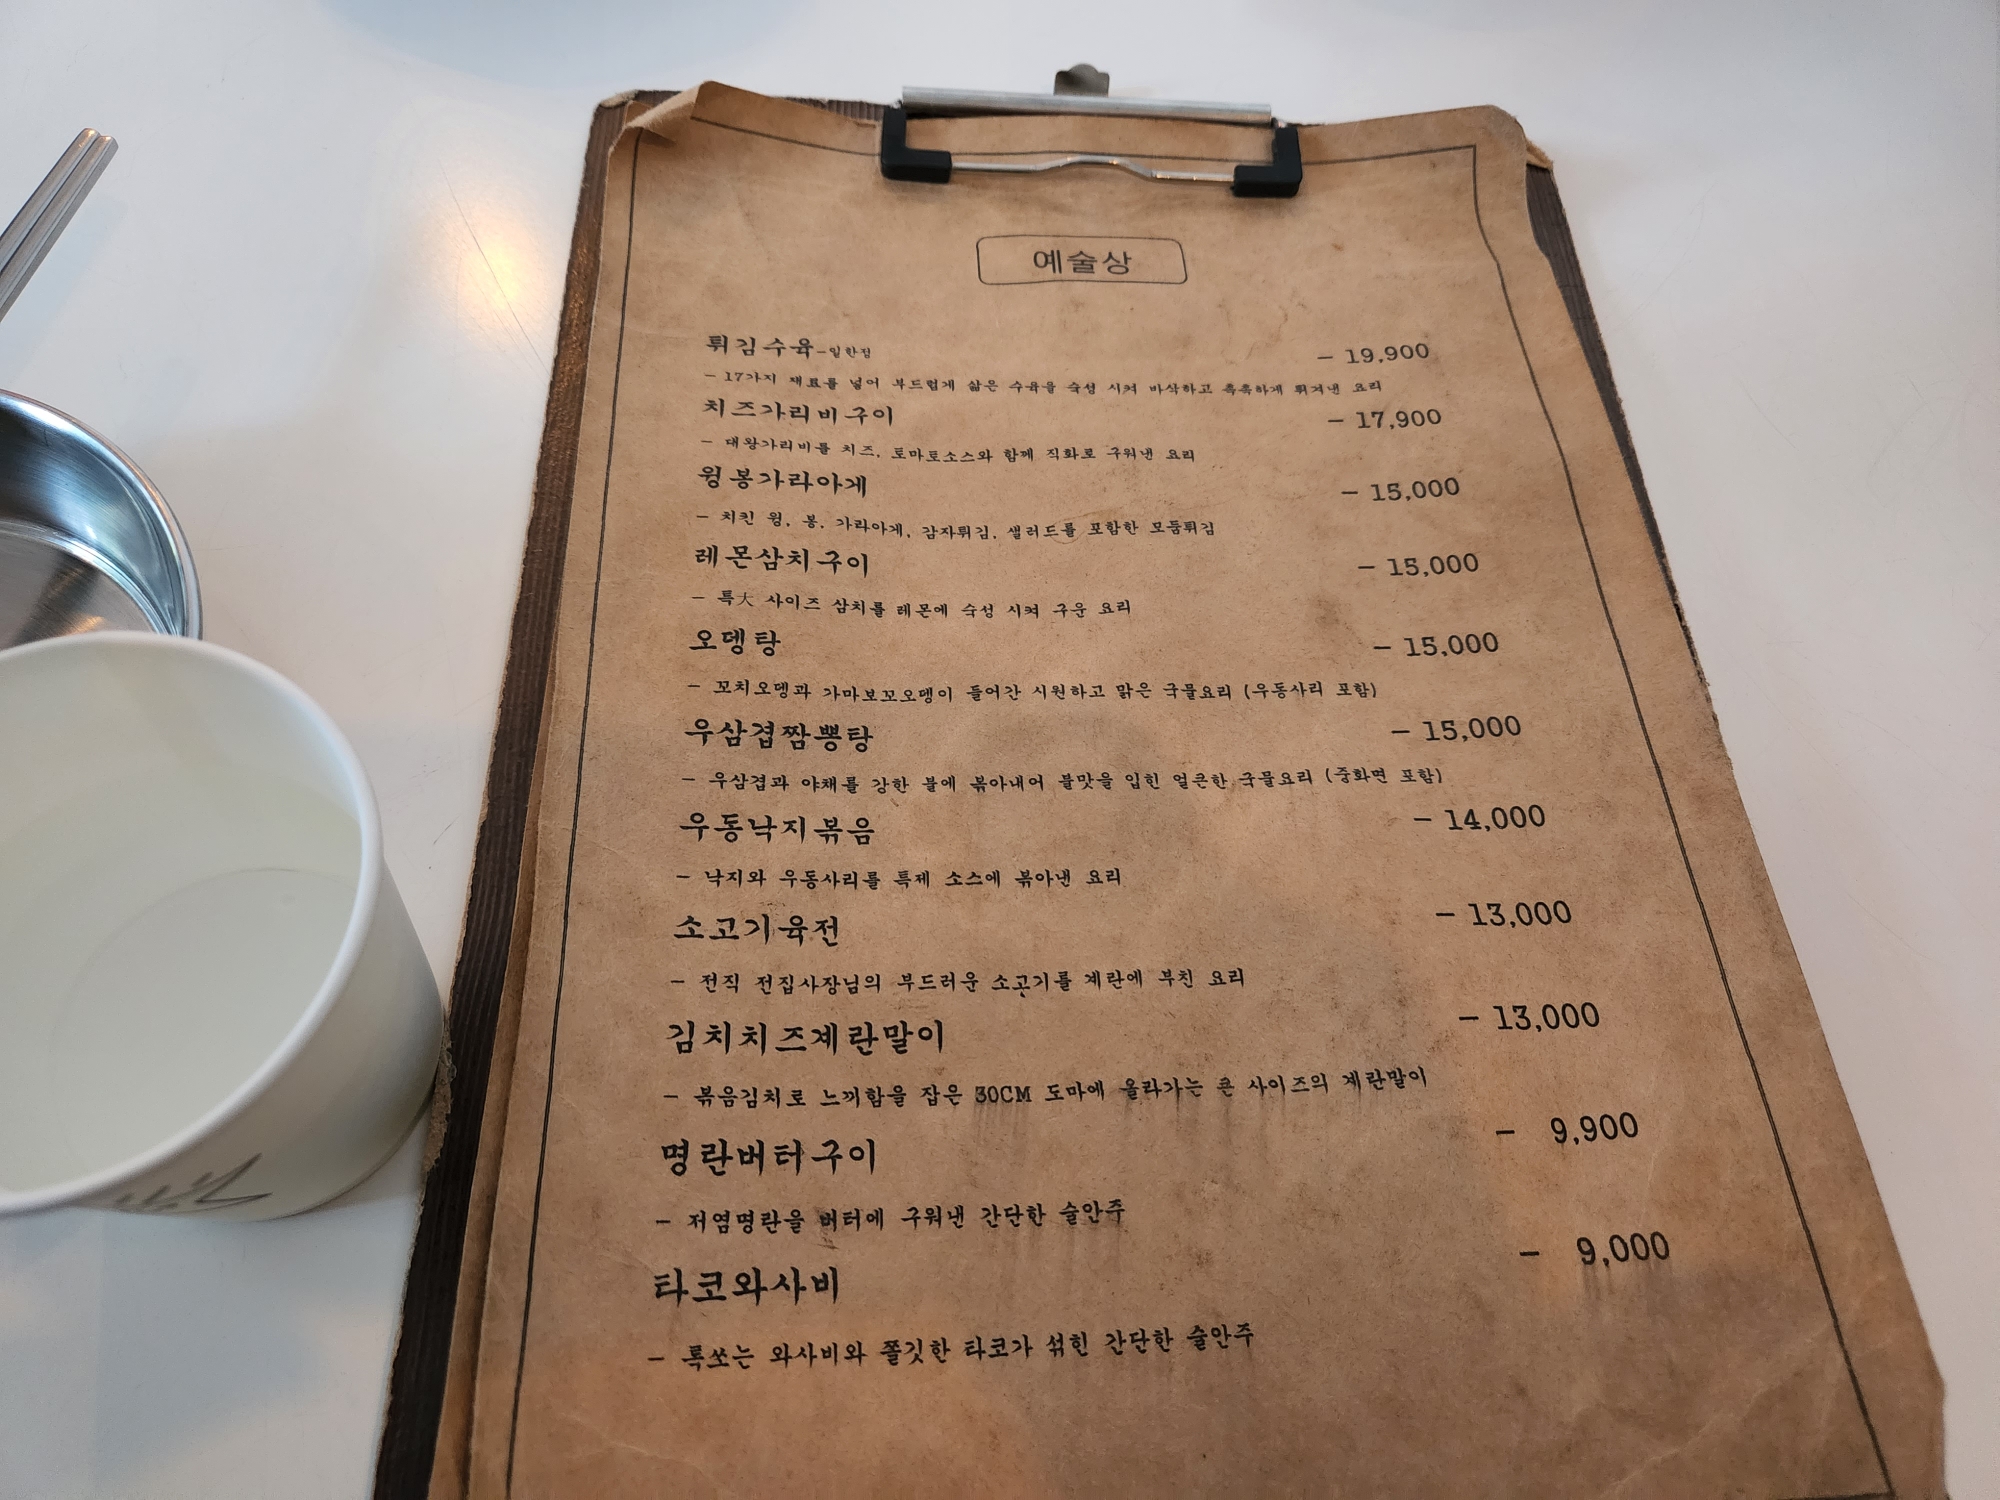 예술상
튀김수육-일한점 - 19,900
- 17가지 재료를 넣어 부드럽게 삶은 수육을 숙성 시켜 바삭하고 촉촉하게 튀겨낸 요리
치즈가리비구이 - 17,900
- 대왕가리비를 치즈, 토마토소스와 함께 직화로 구워낸 요리
윙봉가라아게 - 15,000
- 치킨 윙, 봉, 가라아게, 감자튀김, 샐러드를 포함한 모듬튀김
레몬삼치구이 - 15,000
- 특大 사이즈 삼치를 레몬에 숙성 시켜 구운 요리
오뎅탕 - 15,000
- 꼬치오뎅과 가마보꼬오뎅이 들어간 시원하고 맑은 국물요리 (우동사리 포함)
우삼겹짬뽕탕 - 15,000
- 우삼겹과 야채를 강한 불에 볶아내어 불맛을 입힌 얼큰한 국물요리 (중화면 포함)
우동낙지볶음 - 14,000
- 낙지와 우동사리를 특제 소스에 볶아낸 요리
소고기육전 - 13,000
- 전직 전집사장님의 부드러운 소고기를 계란에 부친 요리
김치치즈계란말이 - 13,000
- 볶음김치로 느끼함을 잡은 30CM 도마에 올라가는 큰 사이즈의 계란말이
명란버터구이 - 9,900
- 저염명란을 버터에 구워낸 간단한 술안주
타코와사비 - 9,000
- 톡쏘는 와사비와 쫄깃한 타코가 섞힌 간단한 술안주